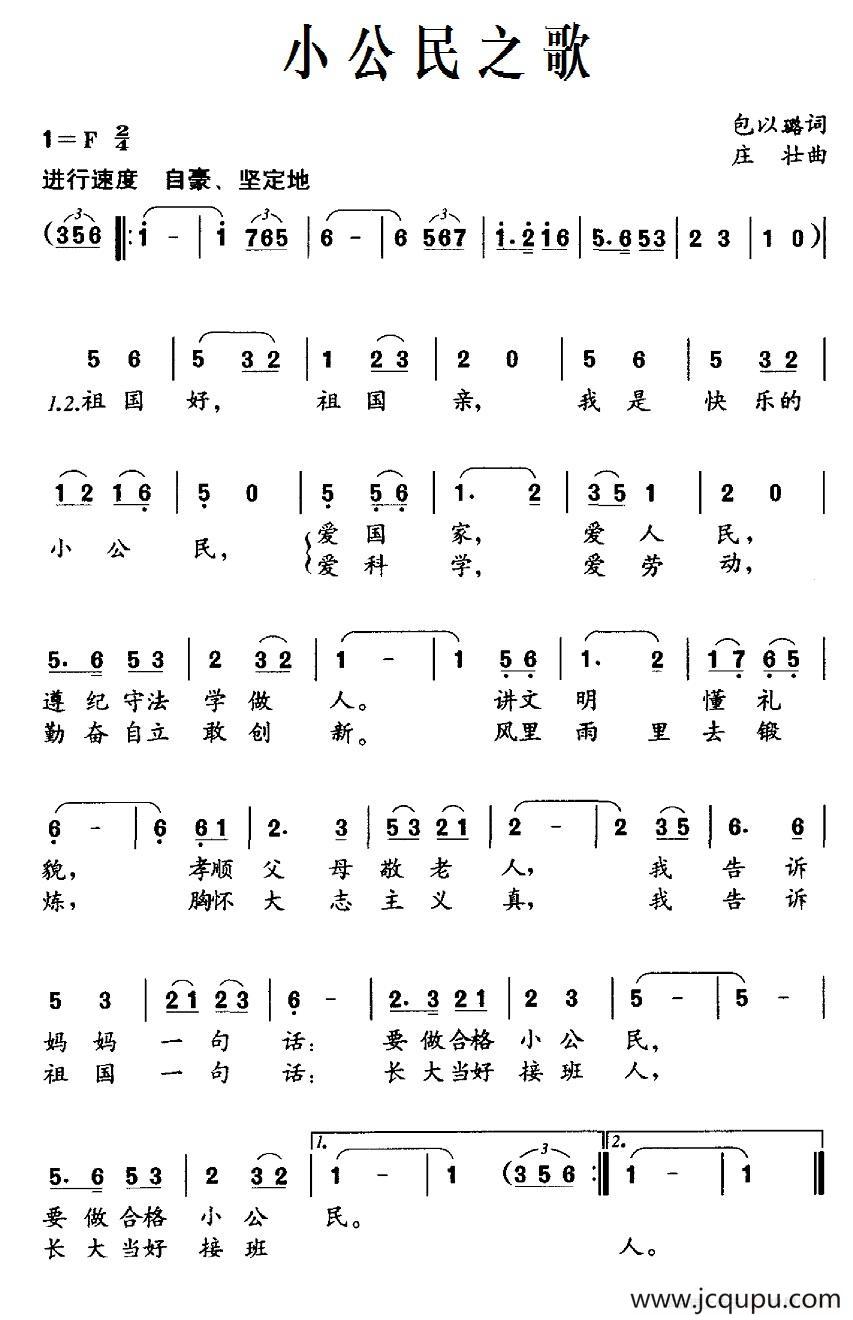 小公民之歌
1=F 2/4
包以璐词
庄 壮曲
进行速度 自豪、坚定地
(356 ‖: i - | i 765 | 6 - | 6 567 | i. 2 i 6 | 5. 6 5 3 | 2 3 | 1 0 )|
5 6 | 5 3 2 | 1 2 3 | 2 0 | 5 6 | 5 3 2 |
1.2.祖国 好， 祖国 亲， 我是 快乐的
1 2 1 6 | 5 0 | 5 5 6 | 1. 2 | 3 5 1 | 2 0 |
小公 民， 爱国 家， 爱人 民，
爱科 学， 爱劳 动，
5. 6 5 3 | 2 3 2 | 1 - | 1 5 6 | 1. 2 | 1 7 6 5 |
遵纪守法 学做 人。 讲文 明 懂礼
勤奋自立 敢创 新。 风里 雨里 去锻
6 - | 6 6 1 | 2. 3 | 5 3 2 1 | 2 - | 2 3 5 | 6. 6 |
貌， 孝顺 父母 敬老 人， 我 告诉
炼， 胸怀 大志 主义 真， 我 告诉
5 3 | 2 1 2 3 | 6 - | 2. 3 2 1 | 2 3 | 5 - | 5 - |
妈妈 一句 话： 要做合格 小公 民，
祖国 一句 话： 长大当好 接班 人，
5. 6 5 3 | 2 3 2 | 1. 1 - | 1 (3 5 6 :‖ 2. 1 - | 1 ‖
要做合格 小公 民。
长大当好 接班 人。
www.jcqupu.com